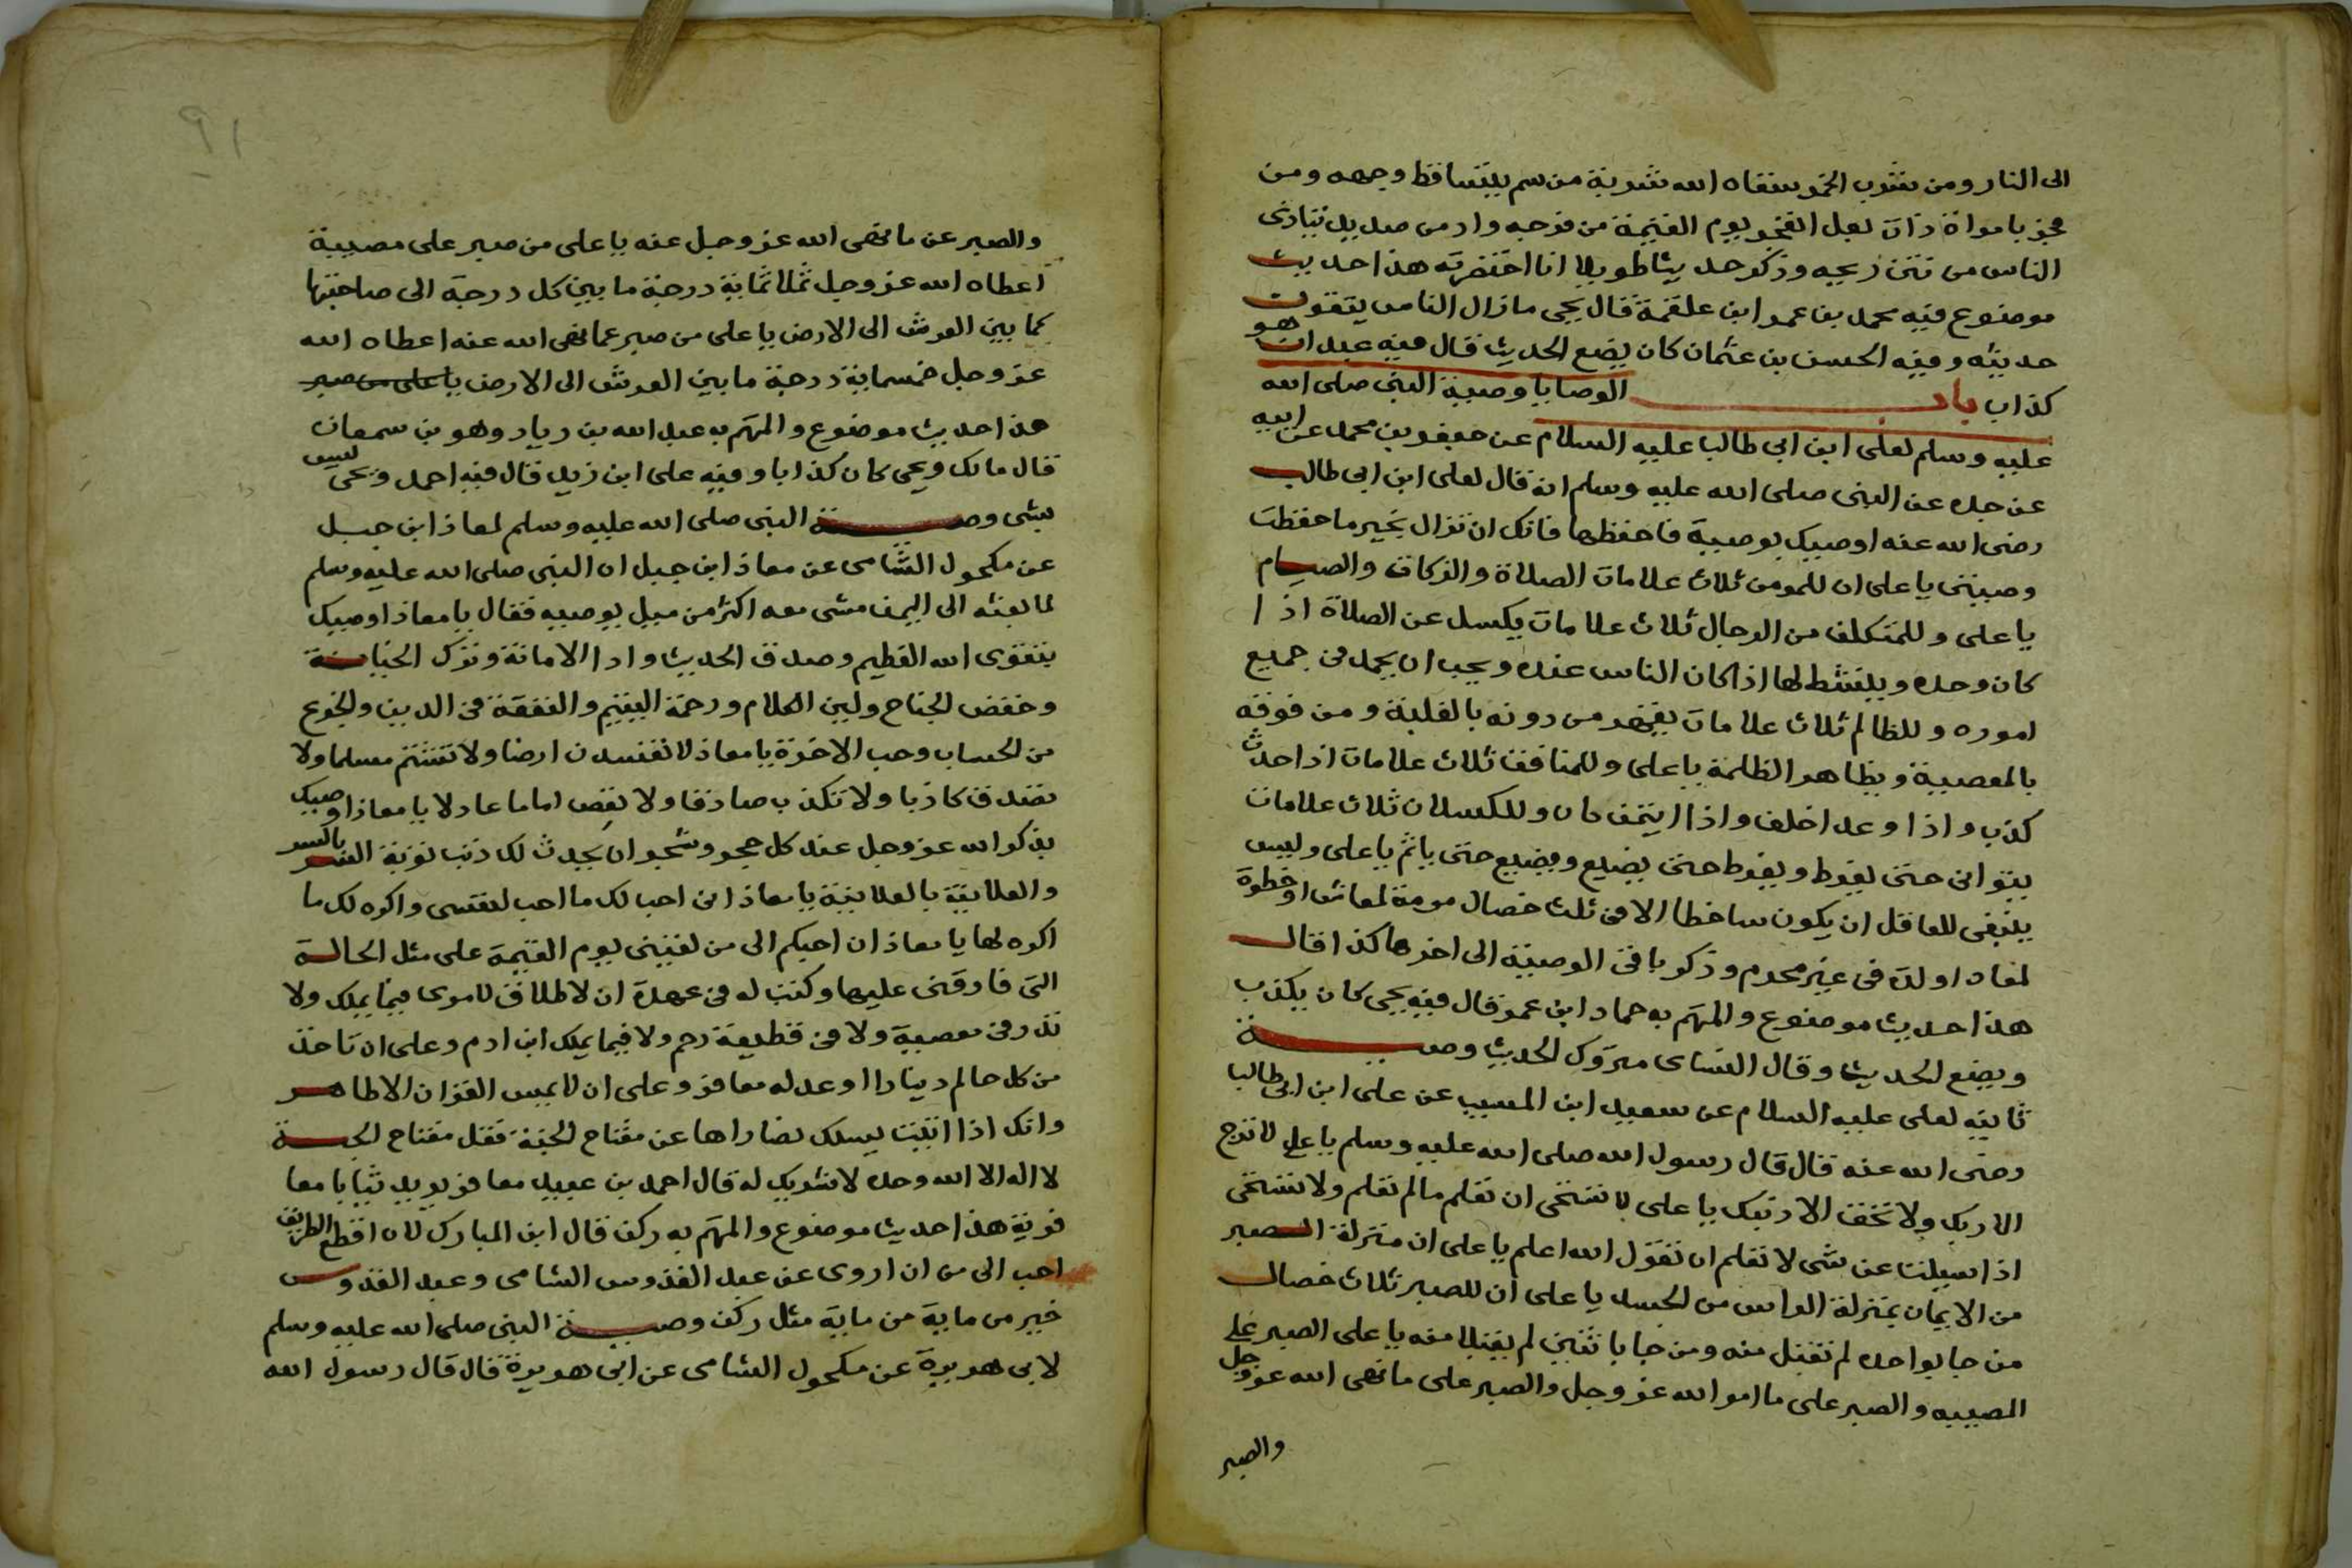 الى النار ومن شرب الخمر سقاه الله شربة من سم يتساقط وجهه ومن
فجر بامراة ذات بعل انفجر يوم القيمة من فرجه واد من صديد يتاذى
الناس من نتن ريحه وذكر حديثا طويلا انا اختصرته هذا حديث
موضوع فيه محمد بن عمر ابن علقمة قال يحيى مازال الناس يتقون
حديثه وفيه الحسن بن عثمان كان يضع الحديث قال فيه عبدان هو
كذاب باب الوصايا وصية النبى صلى الله
عليه وسلم لعلى ابن ابى طالب عليه السلام عن جعفر بن محمد عن ابيه
عن جده عن النبى صلى الله عليه وسلم انه قال لعلى ابن ابى طالب
رضى الله عنه اوصيك بوصية فاحفظها فانك ان تزال بخير ما حفظت
وصيتى يا على ان للمومن ثلاث علامات الصلاة والزكاة والصيام
يا على وللمتكلف من الرجال ثلاث علامات يكسل عن الصلاة اذا
كان وحده وينشط لها اذا كان الناس عنده ويحب ان يحمد فى جميع
اموره وللظالم ثلاث علامات يقهر من دونه بالغلبة ومن فوقه
بالمعصية ويظاهر الظلمة يا على وللمنافق ثلاث علامات اذا حدث
كذب واذا وعد اخلف واذا ايتمن خان وللكسلان ثلاث علامات
يتوانى حتى يفرط ويفرط حتى يضيع ويضيع حتى ياثم يا على وليس
ينبغى للعاقل ان يكون ساخطا الا فى ثلث خصال مرمة لمعاش او خطوة
لمعاد او لذة فى غير محرم وذكر باقى الوصية الى اخرها كذا قال
هذا حديث موضوع والمتهم به حماد ابن عمرو قال فيه يحيى كان يكذب
ويضع الحديث وقال النساى متروك الحديث وصية
ثانية لعلى عليه السلام عن سعيد ابن المسيب عن على ابن ابى طالب
رضى الله عنه قال قال رسول الله صلى الله عليه وسلم يا على لا ترج
الا ربك ولا تخف الا ذنبك يا على لا تستحى ان تعلم مالم تعلم ولا تستحى
اذا سيلت عن شى لا تعلم ان تقول الله اعلم يا على ان منزلة الصبر
من الايمان بمنزلة الراس من الجسد يا على ان للصبر ثلاث خصال
من جا بواحده لم تقبل منه ومن جا باثنين لم يقبلا منه يا على الصبر على
المصيبه والصبر على ما امر الله عز وجل والصبر على ما نهى الله عز وجل
والصبر
91
والصبر عن ما نهى الله عز وجل عنه يا على من صبر على مصيبة
اعطاه الله عز وجل ثلاثماية درجة ما بين كل درجة الى صاحبتها
كما بين العرش الى الارض يا على من صبر عما نهى الله عنه اعطاه الله
عز وجل خمسماية درجة ما بين العرش الى الارض يا على من صبر
هذا حديث موضوع والمتهم به عبد الله بن زياد وهو بن سمعان
قال مالك ويحى كان كذابا وفيه على ابن زيد قال فيه احمد ويحى ليس
بشى وصية النبى صلى الله عليه وسلم لمعاذ ابن جبل
عن مكحول الشامى عن معاذ ابن جبل ان النبى صلى الله عليه وسلم
لما بعثه الى اليمن مشى معه اكثر من ميل يوصيه فقال يا معاذ اوصيك
بتقوى الله العظيم وصدق الحديث وادا الامانة وترك الخيانة
وخفض الجناح ولين الكلام ورحمة اليتيم والتفقة فى الدين والجزع
من الحساب وحب الاخرة يا معاذ لا تفسدن ارضا ولا تشتم مسلما ولا
تصدق كاذبا ولا تكذب صادقا ولا تعص اماما عادلا يا معاذ اوصيك
بذكر الله عز وجل عند كل حجر وشجر ان يحدث لك ذنب توبة السر بالسر
والعلانية بالعلانية يا معاذ انى احب لك ما احب لنفسى واكره لك ما
اكره لها يا معاذ ان احبكم الى من لقينى يوم القيمة على مثل الحالة
التى فارقنى عليها وكتب له فى عهدة ان لا طلاق لامرى فيما يملك ولا
نذر فى معصية ولا فى قطيعة رحم ولا فيما يملك ابن ادم وعلى ان تاخذ
من كل حالم دينارا او عدله معافر وعلى ان لا يمس القران الا طاهر
وانك اذا اتيت يسلك نصاراها عن مفتاح الجنة فقل مفتاح الجنة
لا اله الا الله وحده لا شريك له قال احمد بن عبيد معافر يريد ثيابا معا
فرية هذا حديث موضوع والمتهم به ركن قال ابن المبارك لان اقطع الطريق
احب الى من ان اروى عن عبد القدوس الشامى وعبد القدوس
خير من ماية من ماية مثل ركن وصية النبى صلى الله عليه وسلم
لابى هريرة عن مكحول الشامى عن ابى هريرة قال قال رسول الله